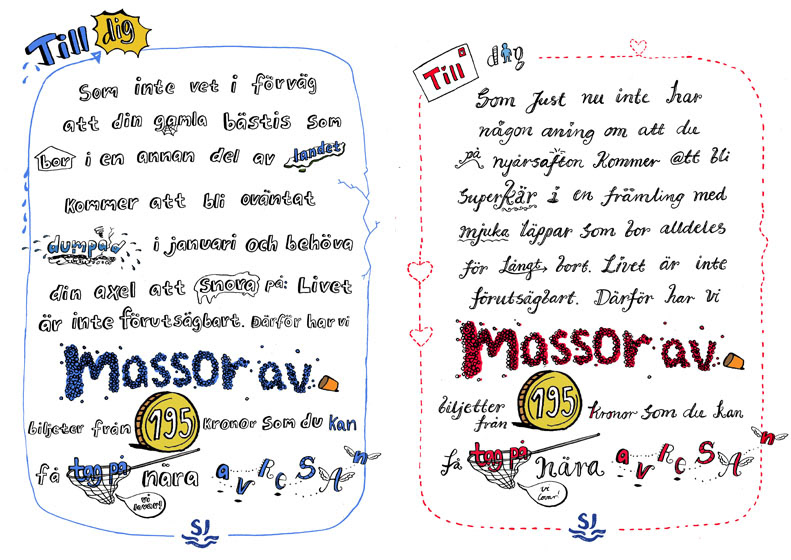 Till dig
Som inte vet i förväg
att din gamla bästis som
bor i en annan del av landet
kommer att bli oväntat
dumpad i januari och behöva
din axel att snora på: Livet
är inte förutsägbart. Därför har vi
Massor av
biljeter från 195 kronor som du kan
få tag på nära avresan
vi lovar!
SJ
Till dig
Som Just nu inte har
någon aning om att du
på nyårsafton kommer att bli
superkär i en främling med
mjuka läppar som bor alldeles
för långt bort. Livet är inte
förutsägbart. Därför har vi
Massor av
biljetter från 195 kronor som du kan
få tag på nära avresan
vi lovar!
SJ